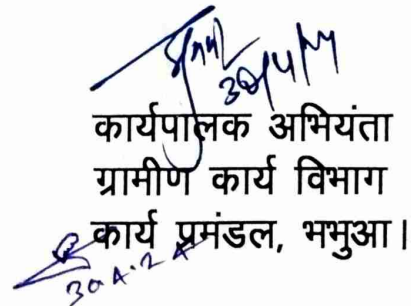 कार्यपालक अभियंता
ग्रामीण कार्य विभाग
कार्य प्रमंडल, भभुआ।
30.4.24